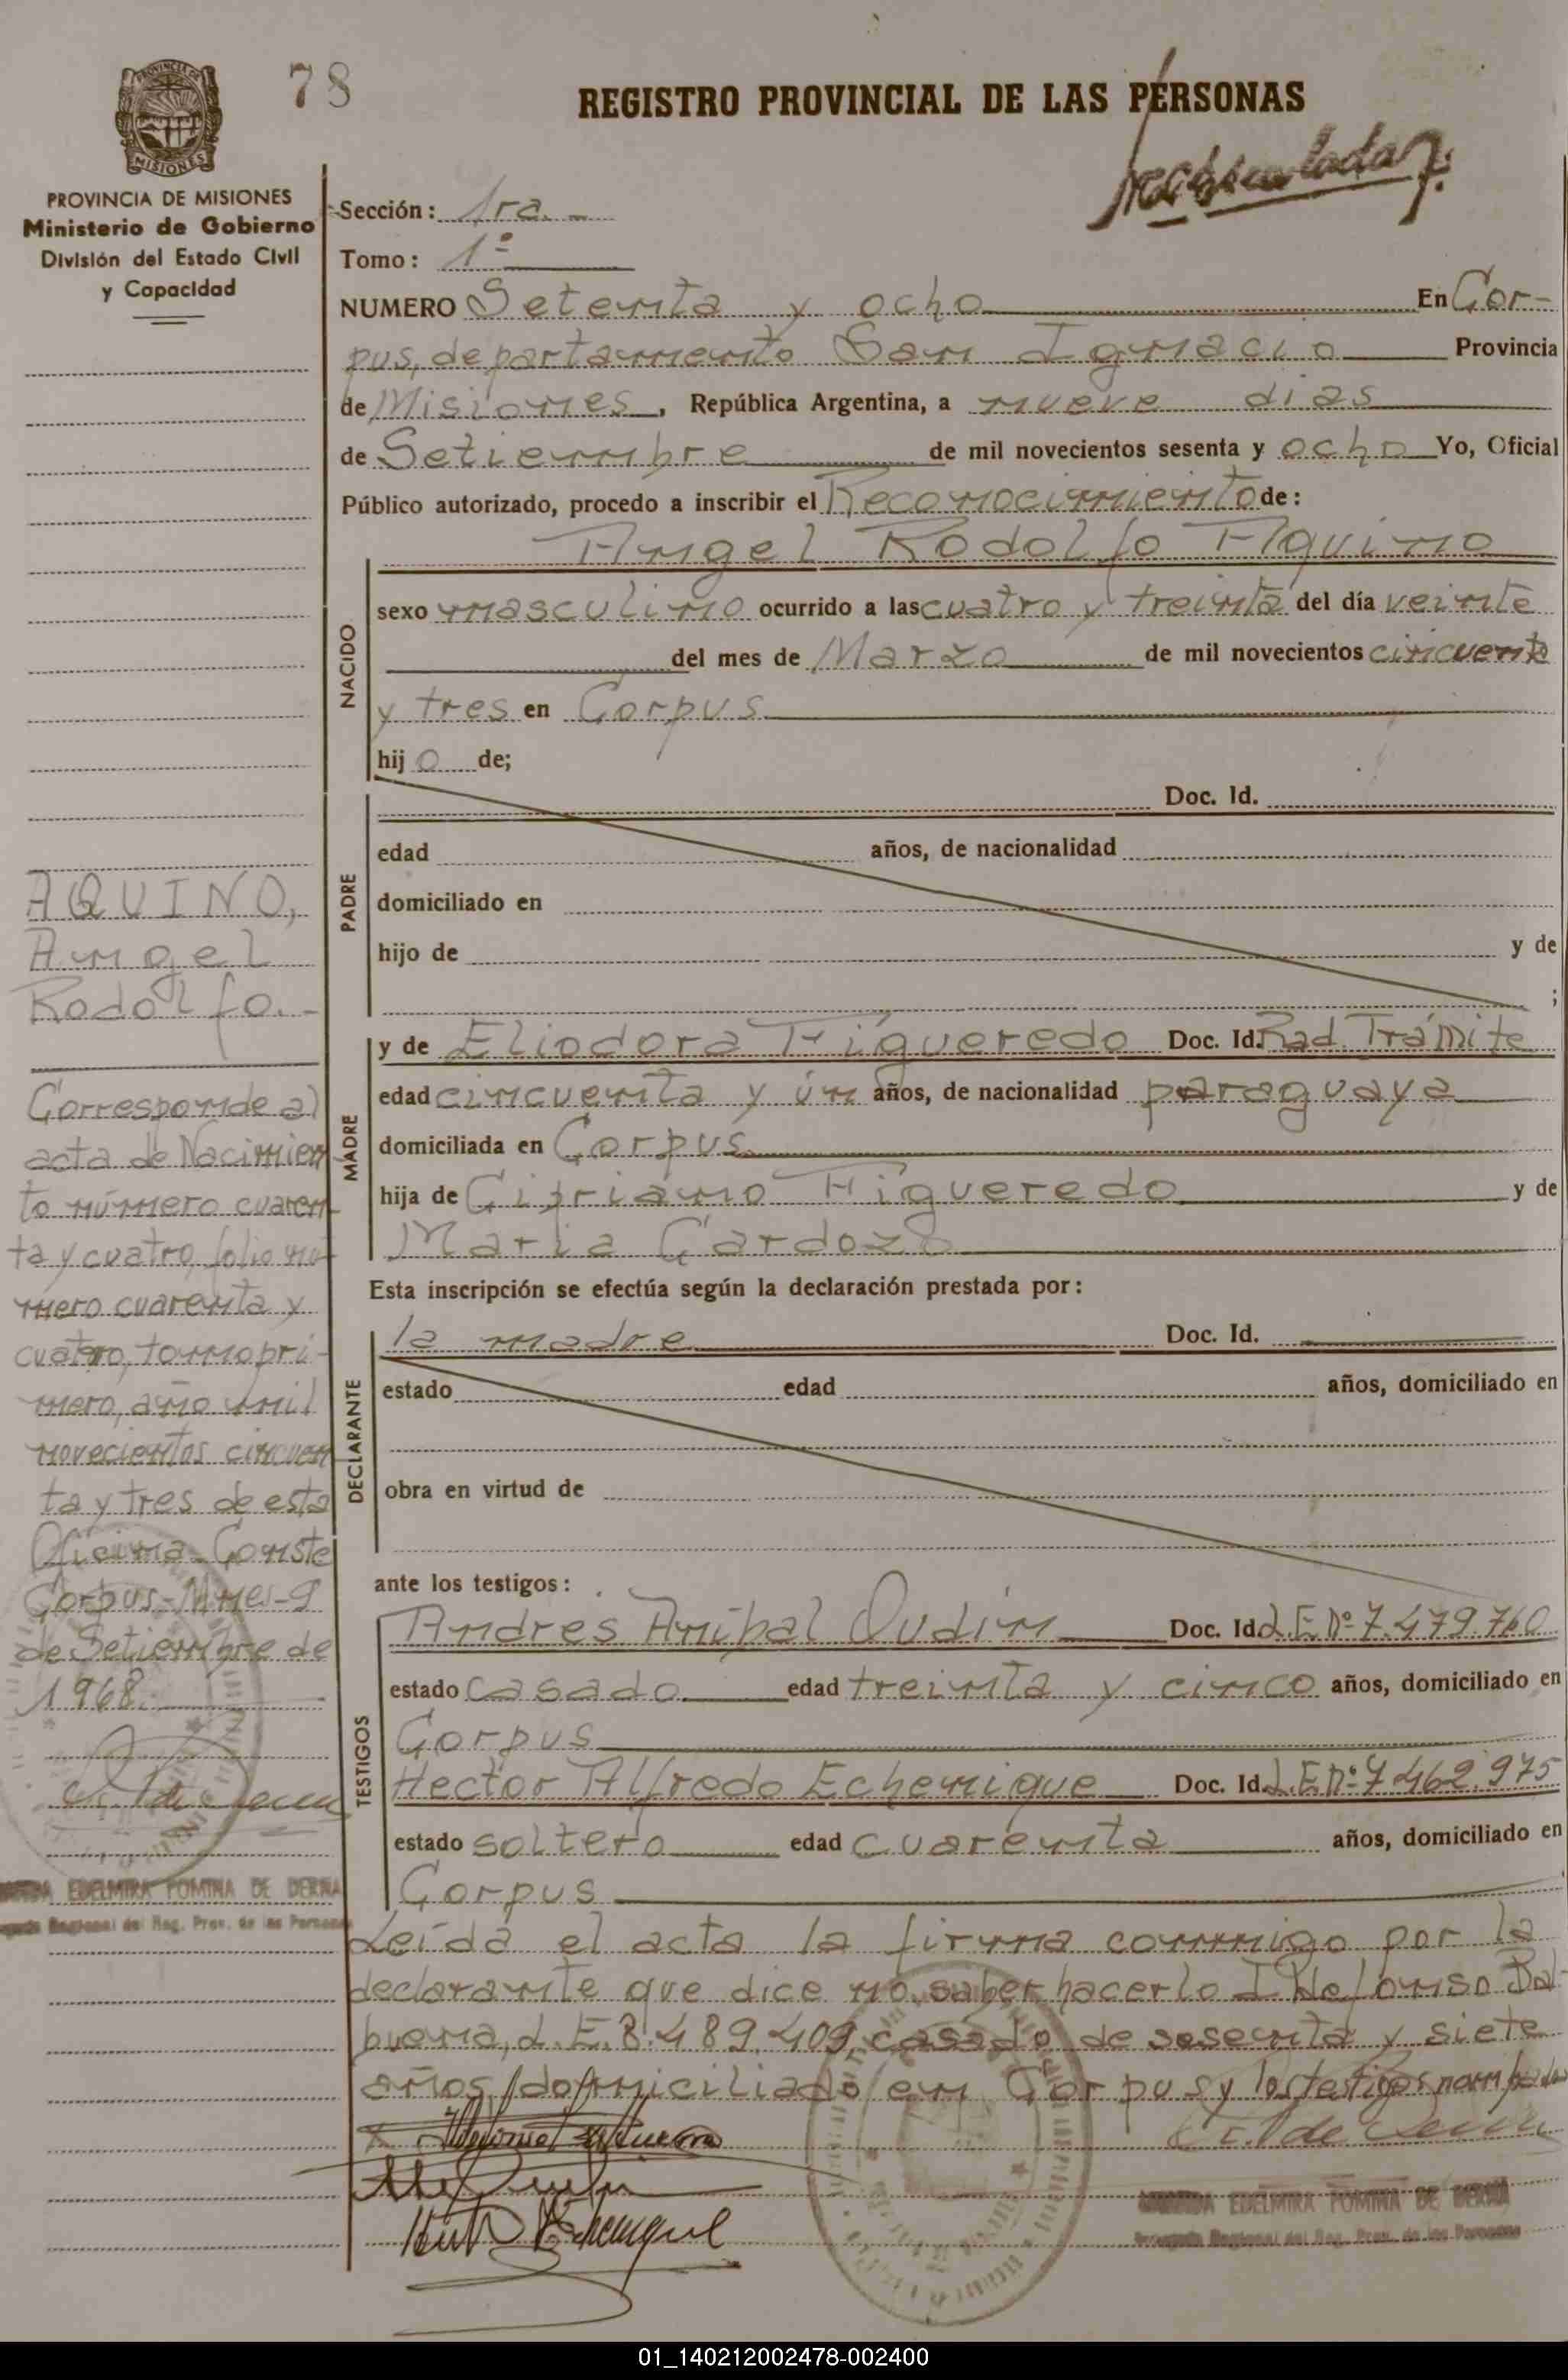 78
REGISTRO PROVINCIAL DE LAS PERSONAS
PROVINCIA DE MISIONES
MISIONES
PROVINCIA DE MISIONES
Ministerio de Gobierno
División del Estado Civil
y Capacidad
Sección: 1ra.-
Tomo: 1º
NUMERO Setenta y ocho En Cor-
pus, departamento San Ignacio Provincia
de Misiones, República Argentina, a nueve dias
de Setiembre de mil novecientos sesenta y ocho Yo, Oficial
Público autorizado, procedo a inscribir el Reconocimiento de:
NACIDO
Angel Rodolfo Aquino
sexo masculino ocurrido a las cuatro y treinta del día veinte
del mes de Marzo de mil novecientos cincuenta
y tres en Corpus
hij o de;
PADRE
Doc. Id.
edad años, de nacionalidad
domiciliado en
hijo de y de
;
MADRE
y de Eliodora Figueredo Doc. Id. Rad. Trámite
edad cincuenta y ún años, de nacionalidad paraguaya
domiciliada en Corpus
hija de Cipriano Figueredo y de
Maria Cardozo
Esta inscripción se efectúa según la declaración prestada por:
DECLARANTE
la madre Doc. Id.
estado edad años, domiciliado en
obra en virtud de
ante los testigos:
TESTIGOS
Andres Anibal Dudin Doc. Id. L.E.Nº 7.479.760
estado casado edad treinta y cinco años, domiciliado en
Corpus
Hector Alfredo Echenique Doc. Id. L.E.Nº 7.462.975
estado soltero edad cuarenta años, domiciliado en
Corpus
Leída el acta la firma conmigo por la
declarante que dice no saber hacerlo Ildefonso Bal-
buena, L.E. 8.489.409, casado, de sesenta y siete
años, domiciliado en Corpus y los testigos nombrados
AQUINO,
Angel
Rodolfo.-
Corresponde al
acta de Nacimien
to número cuaren-
ta y cuatro, folio nú-
mero cuarenta y
cuatro, tomo pri-
mero, año mil
novecientos cincuen
ta y tres de esta
Oficina-Conste
Corpus-Mnes-9
de Setiembre de
1968.
EDELMIRA FOMINA DE DERNA
Regional del Reg. Prov. de las Personas
EDELMIRA FOMINA DE DERNA
Regional del Reg. Prov. de las Personas
01_140212002478-002400